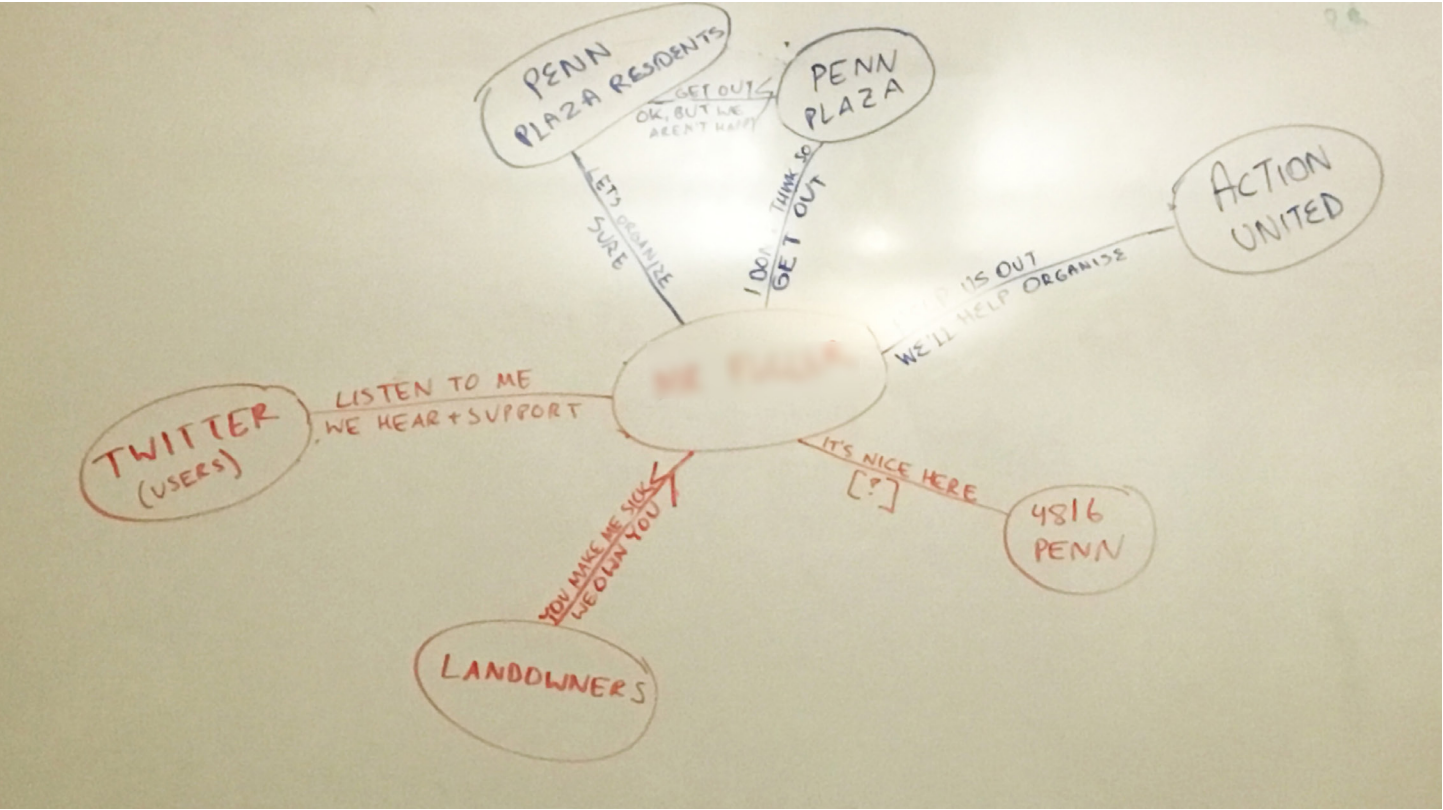 PENN
PLAZA RESIDENTS
GET OUT
OK, BUT WE
AREN'T
PENN
PLAZA
LET'S ORGANIZE
SURE
I THINK SO
GET OUT
ACTION
UNITED
US OUT
WE'LL HELP ORGANISE
LISTEN TO ME
WE HEAR + SUPPORT
TWITTER
(USERS)
IT'S NICE HERE
[?]
4816
PENN
YOU MAKE ME SICK
WE OWN YOU
LANDOWNERS